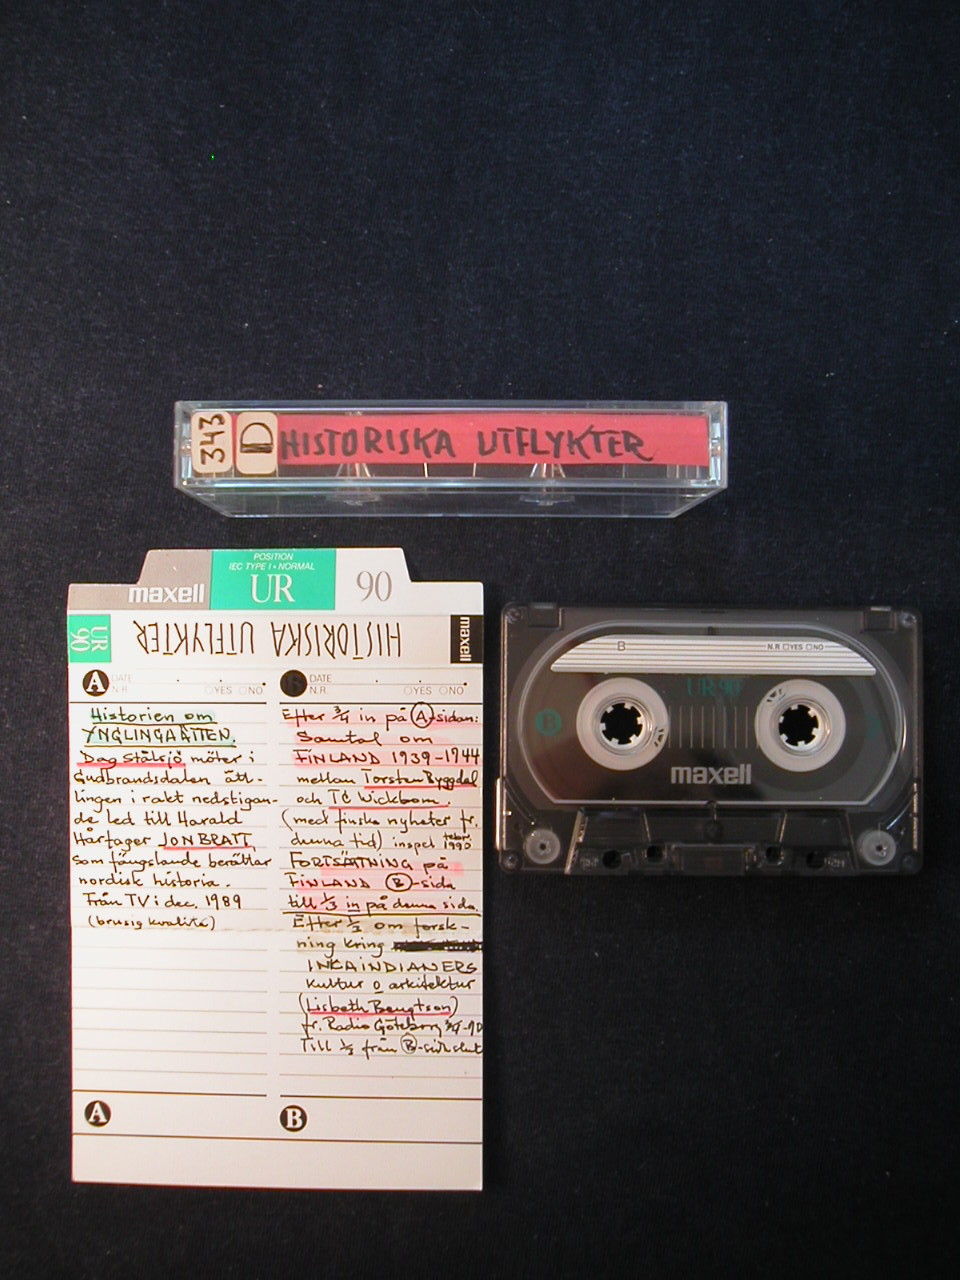 343
D
HISTORISKA UTFLYKTER
POSITION
IEC TYPE I • NORMAL
maxell
UR
90
UR
90
HISTORISKA UTFLYKTER
maxell
A
DATE
N.R
YES
NO
DATE
N.R
YES
NO
Historien om
YNGLINGAÄTTEN.
Dag Stålsjö möter i
Gudbrandsdalen ätt-
lingen i rakt nedstigan-
de led till Harald
Hårfager JON BRATT
som fängslande berättar
nordisk historia.
Från TV i dec. 1989
(brusig kvalité)
Efter 3/4 in på A-sidan:
Samtal om
FINLAND 1939-1944
mellan Torsten Byggdal
och TG Wickbom.
(med finska nyheter fr.
denna tid) inspel febr. 1990
FORTSÄTTNING på
FINLAND B-sida
till 1/3 in på denna sida.
Efter 1/3 om forsk-
ning kring
INKAINDIANERS
kultur o arkitektur
(Lisbeth Bengtson)
fr. Radio Göteborg -90
Till från B-sidslut
A
B
B
N.R YES NO
UR 90
B
maxell